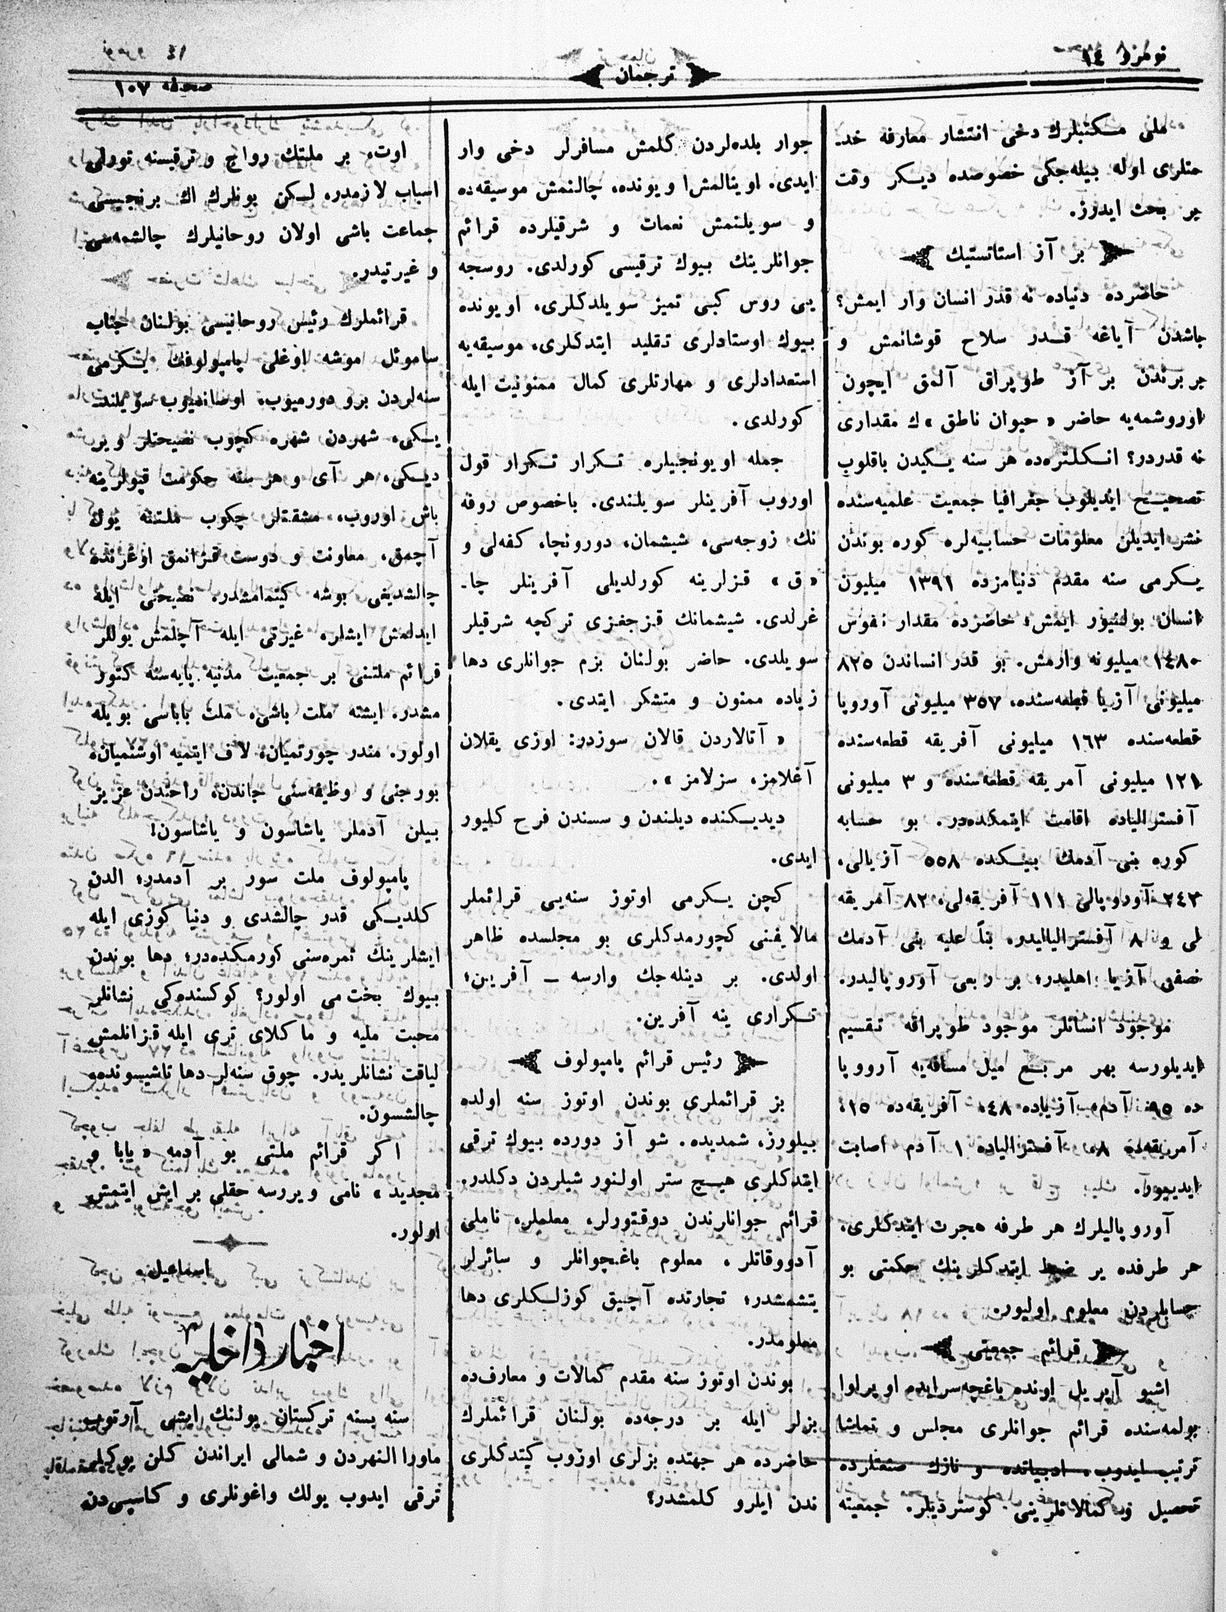 نومرو ١٤
ترجمان
صحیفه ١٠٧
ملی مکتبلرك دخی انتشار معارفه خد-
متلری اوله بیله‌جکی خصوصده دیکر وقت
بر بحث ایدرز.
بر آز استاتستیك
حاضرده دنیاده نه قدر انسان وار ایمش؟
باشدن آیاغه قدر سلاح قوشانمش و
بر برندن بر آز طوپراق آلمق ایچون
اوروشمه‌یه حاضر « حیوان ناطق »ك مقداری
نه قدردر؟ انکلتره‌ده هر سنه یکیدن باقلوب
تصحیح ایدیلوب جغرافیا جمعیت علمیه‌سنده
نشر ایدیلن معلومات حسابیه‌لره کوره بوندن
یکرمی سنه مقدم دنیامزده ١٣٩١ میلیون
انسان بولنیور ایمش؛ حاضرده مقدار نفوس
١٤٨٠ میلیونه وارمش. بو قدر انساندن ٨٢٥
میلیونی آزیا قطعه‌سنده، ٣٥٧ میلیونی آوروپا
قطعه‌سنده ١٦٣ میلیونی آفریقه قطعه‌سنده
١٢١ میلیونی آمریقه قطعه‌سنده و ٣ میلیونی
آفسترالیاده اقامت ایتمکده‌در. بو حسابه
کوره بنی آدمك بیکده ٥٥٨ آزیالی،
٢٤٣ آوروپالی ١١١ آفریقه‌لی، ٨٢ آمریقه
لی و ٨ آفسترالیالیدر. بناً علیه بنی آدمك
نصفی آزیا اهلیدر؛ بر ربعی آوروپالیدر.
موجود انسانلر موجود طوپراقه تقسیم
ایدیلورسه بهر مربع میل مسافه‌یه آرووپا
ده ٩٥ آدم، آزیاده ٤٨، آفریقه‌ده ١٥،
آمریقه‌ده ٨، آفسترالیاده ١ آدم اصابت
ایدیور.
آوروپالیلرك هر طرفه هجرت ایتدکلری،
هر طرفده یر ضبط ایتدکلرینك حکمتی بو
حسابلردن معلوم اولیور.
قرائم جمعیتی
اشبو آپریل اونده باغچه‌سرایده اوپراوا
بولمه‌سنده قرائم جوانلری مجلس و تماشا
ترتیب ایدوب، ادبیاتده و نازك صنعتلرده
تحصیل و کمالاتلرینی کوستردیلر. جمعیته
جوار بلده‌لردن کلمش مسافرلر دخی وار
ایدی. اوینالمش اویونده، چالنمش موسیقه‌ده
و سویلنمش نعمات و شرقیلرده قرائم
جوانلرینك بیوك ترقیسی کورلدی. روسجه
یی روس کبی تمیز سویلدکلری، اویونده
بیوك اوستادلری تقلید ایتدکلری، موسیقه‌یه
استعدادلری و مهارتلری کمال ممنونیت ایله
کورلدی.
جمله اویونجیلره تکرار تکرار قول
اوروب آفرینلر سویلندی. باخصوص روفه
نك زوجه‌سی، شیشمان، دورونچا، کفه‌لی و
« ق » قزلرینه کورلدیلی آفرینلر چا-
غرلدی. شیشمانك قزجغزی ترکچه شرقیلر
سویلدی. حاضر بولنان بزم جوانلری دها
زیاده ممنون و متشکر ایتدی.
« آتالاردن قالان سوزدر: اوزی یقلان
آغلامز، سزلامز ».
دیدیکنده دیلندن و سسندن فرح کلیور
ایدی.
کچن یکرمی اوتوز سنه‌یی قرائملر
مالایعنی کچورمدکلری بو مجلسده ظاهر
اولدی. بر دینله‌جك وارسه ـ آفرین؛
تکراری ینه آفرین.
رئیس قرائم پامپولوف
بز قرائملری بوندن اوتوز سنه اولده
بیلورز، شمدیده. شو آز دورده بیوك ترقی
ایتدکلری هیچ ستر اولنور شیلردن دکلدر.
قرائم جوانارندن دوقتورلر، معلملر، ناملی
آدووقاتلر، معلوم باغچوانلر و سائرلر
یتشمشدر؛ تجارتده آچیق کوزلکلری دها
معلومدر.
بوندن اوتوز سنه مقدم کمالات و معارف‌ده
بزلر ایله بر درجه‌ده بولنان قرائملرك
حاضرده هر جهتده بزلری اوزوب کیتدکلری
ندن ایلرو کلمشدر؟
اوت، بر ملتك رواج و ترقیسنه تورلی
اسباب لازمدر. لکن بونلرك اك برنجیسی
جماعت باشی اولان روحانیلرك چالشمه‌سی
و غیرتیدر.
قرائملرك رئیس روحانیسی بولنان جناب
ساموئل موشه اوغلی پامپولوفك یکرمی
سنه‌لردن برو دورمیوب، اوصانمیوب سویلند
یکی، شهردن شهره کچوب نصیحتلر ویر
دیکی، هر آی و هر سنه حکومت قپولرینه
باش اوروب، مشقتلر چکوب ملتنه یول
آچمق، معاونت و دوست قزانمق اوغرنده
چالشدیغی بوشه کیتمامشدر. نصیحتی ایله
ایدلمش ایشلره، غیرتی ایله آچلمش یوللر
قرائم ملتنی بر جمعیت مدنیه پایه‌سنه کتور
مشدر. ایشته ملت باشی، ملت باباسی بویله
اولور. مندر چورتمیان، لاف ایتمیه اوشنمیان،
بورجنی و وظیفه‌سنی جاندن، راحتدن عزیز
بیلن آدملر یاشاسون و یاشاسون!
پامپولوف ملت سور بر آدمدر؛ الدن
کلدیکی قدر چالشدی و دنیا کوزی ایله
ایشلرینك ثمره‌سنی کورمکده‌در؛ دها بوندن
بیوك بخت‌می اولور؟ کوکسنده‌کی نشانلر
محبت ملیه و ماکلای تری ایله قزانلمش
لیاقت نشانلریدر. چوق سنه‌لر دها تاشیسون‌ده
چالشسون.
اکر قرائم ملتی بو آدمه « بابا و
مجدید » نامی ویررسه حقلی بر ایش ایتمش
اولور.
اسماعیل
اخبار داخلیه
سنه بسنه ترکستان یولنك ایشی آرتوب
ماورا النهردن و شمالی ایراندن کلن یوکلر
ترقی ایدوب یولك واغونلری و کاسپی‌دن